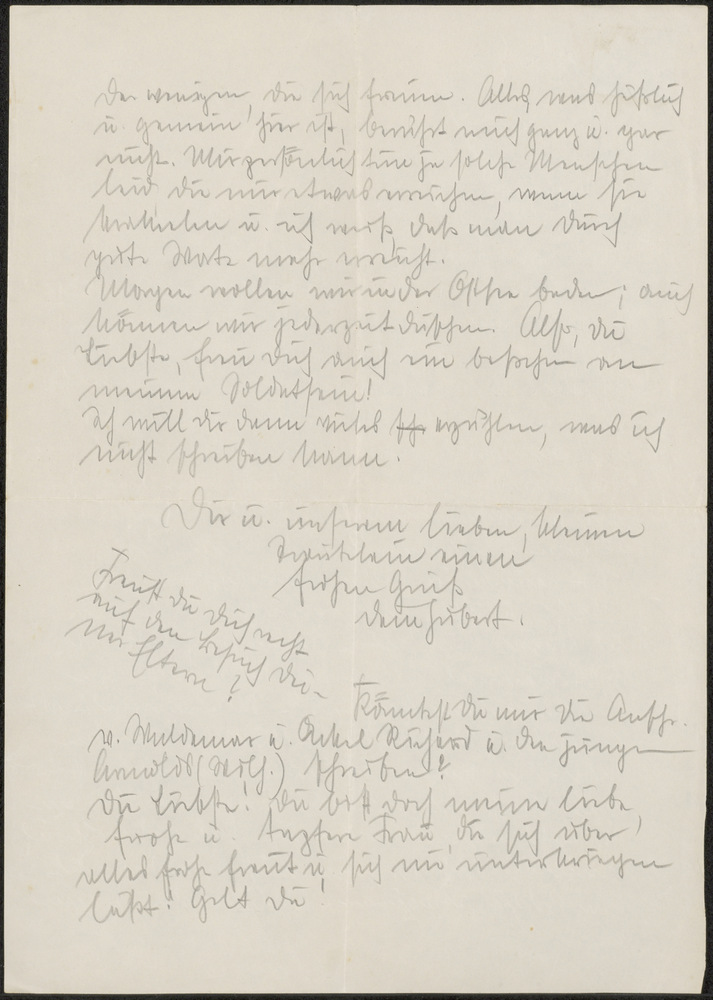 der wenigen, die sich freuen. Alles, was häßlich
u. gemein hier ist, berührt mich ganz u. gar
nicht. Mir persönlich tun ja solche Menschen
leid, die nur etwas erreichen, wenn sie
u. ich weiß, daß man durch
gute Worte mehr erreicht.
Morgen wollen wir in der Ostsee baden; auch
können wir jederzeit duschen. Also, du
Liebste, freu Dich auch ein bißchen an
meinem Soldatsein!
Ich will dir dann vieles erzählen, was ich
nicht schreiben kann.
Dir u. unserem lieben, kleinen
einen
frohen Gruß
dein Hubert.
Freust du dich recht
auf den Besuch dei-
ner Eltern?
Könntest Du mir die Anschr.
v. Waldemar u. Onkel Richard u. den jungen
Arnolds (Wilh.) schreiben?
Du Liebste! Du bist doch meine liebe,
frohe u. tapfere Frau, die sich über
alles frohe freut u. sich nie unterkriegen
läßt! Gelt du!